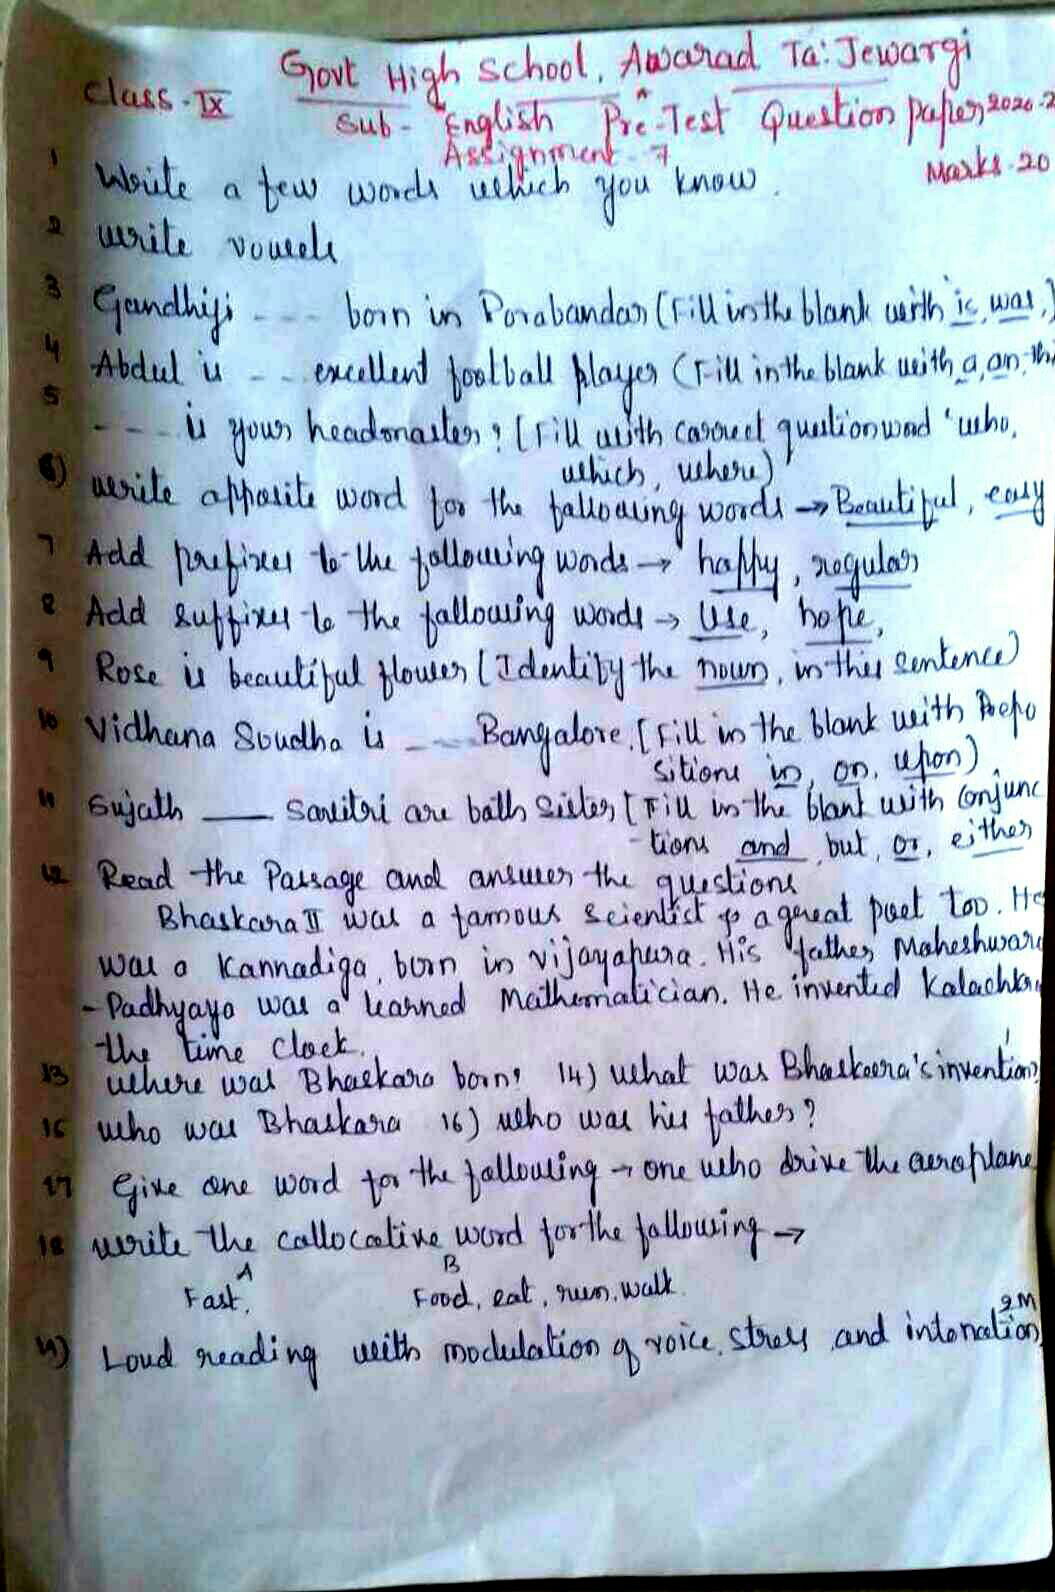 Govt High School, Awarad Ta: Jewargi
Class - IX
Sub - English Pre-Test Question paper 2020-2
Assignment - 7
Marks - 20
1 Write a few words which you know.
2 Write vowels
3 Gandhiji --- born in Porabandar (Fill in the blank with is, was,)
4 Abdul is --- excellent football player (Fill in the blank with a, an, the
5 ---- is your headmaster? [Fill with correct question word 'who,
which, where)
6) Write opposite word for the following words → Beautiful, easy
7 Add prefixes to the following words → happy, regular
8 Add suffixes to the following words → Use, hope,
9 Rose is beautiful flower (Identify the noun, in this sentence)
10 Vidhana Soudha is --- Bangalore. [Fill in the blank with Prepo
sitions in, on, upon)
11 Sujath ___ Savitri are both Sister [Fill in the blank with Conjunc
-tions and, but, or, either
12 Read the Passage and answer the questions
Bhaskara II was a famous scientist & a great poet too. He
was a Kannadiga, born in vijayapura. His father Maheshwara
- Padhyaya was a learned Mathematician. He invented Kalachkra
the time clock.
13 where was Bhaskara born? 14) what was Bhaskara's invention?
15 who was Bhaskara 16) who was his father?
17 Give one word for the following → one who drive the aeroplane
18 write the collocative word for the following →
A B
Fast, Food, eat, run, walk.
2M
19) Loud reading with modulation of voice, stress and intonation